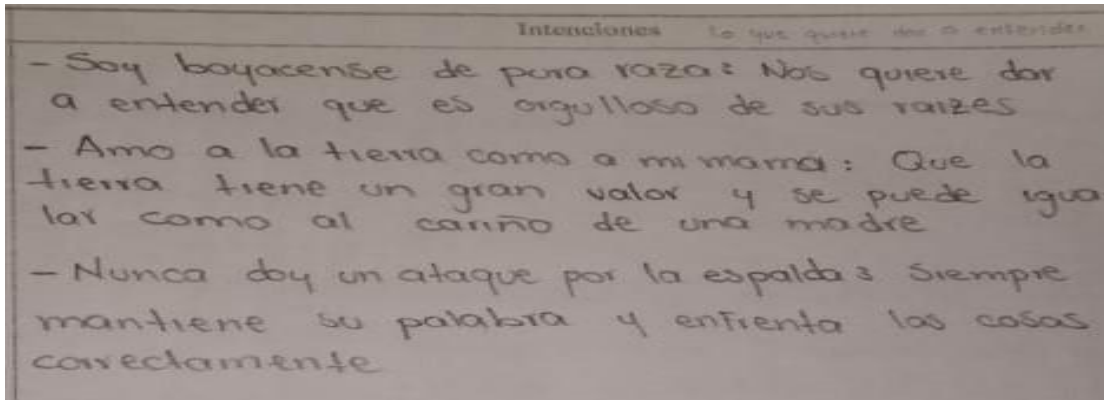 Intenciones lo que quiere dar a entender
- Soy boyacense de pura raza: Nos quiere dar
a entender que es orgulloso de sus raizes
- Amo a la tierra como a mi mama: Que la
tierra tiene un gran valor y se puede igua
lar como al cariño de una madre
- Nunca doy un ataque por la espalda: Siempre
mantiene su palabra y enfrenta las cosas
correctamente